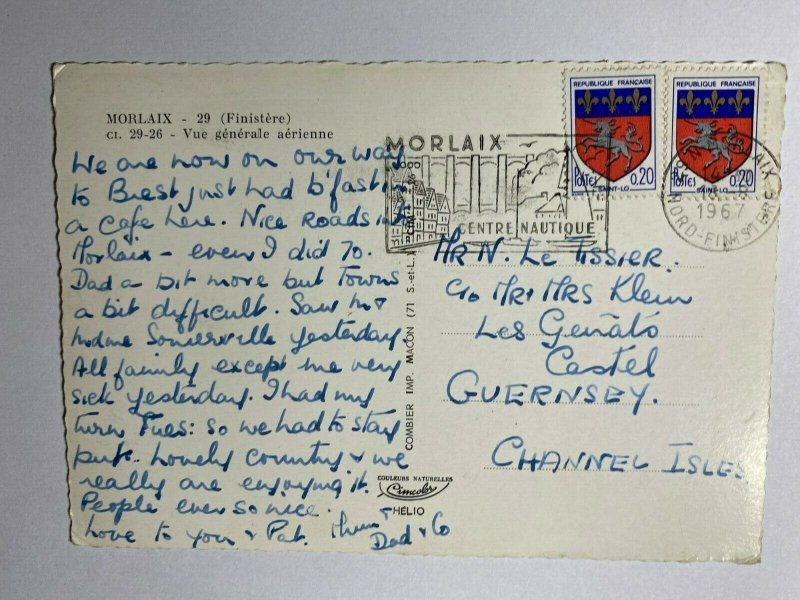 MORLAIX - 29 (Finistère)
CI. 29-26 - Vue générale aérienne
We are now on our way
to Brest just had b'fast in
a cafe here. Nice Roads into
Morlaix - even I did 70.
Dad a bit more but Towns
a bit difficult. Saw
Somerville yesterday
All family except me very
sick yesterday. I had my
turn Tues: so we had to stay
put. Lovely country & we
really are enjoying it.
People ever so nice.
Love to you & Pat. Mum &
Dad & Co
COMBIER IMP. MACON (71 S.-et-L.)
COULEURS NATURELLES
Cimcolor
HÉLIO
MORLAIX
CENTRE NAUTIQUE
REPUBLIQUE FRANÇAISE
Postes 0,20
SAINT-LO
REPUBLIQUE FRANÇAISE
Postes 0,20
SAINT-LO
1967
NORD-FINISTERE
MR N. Le Tissier.
c/o Mr & Mrs Klein
Les
Castel
GUERNSEY.
CHANNEL ISLES